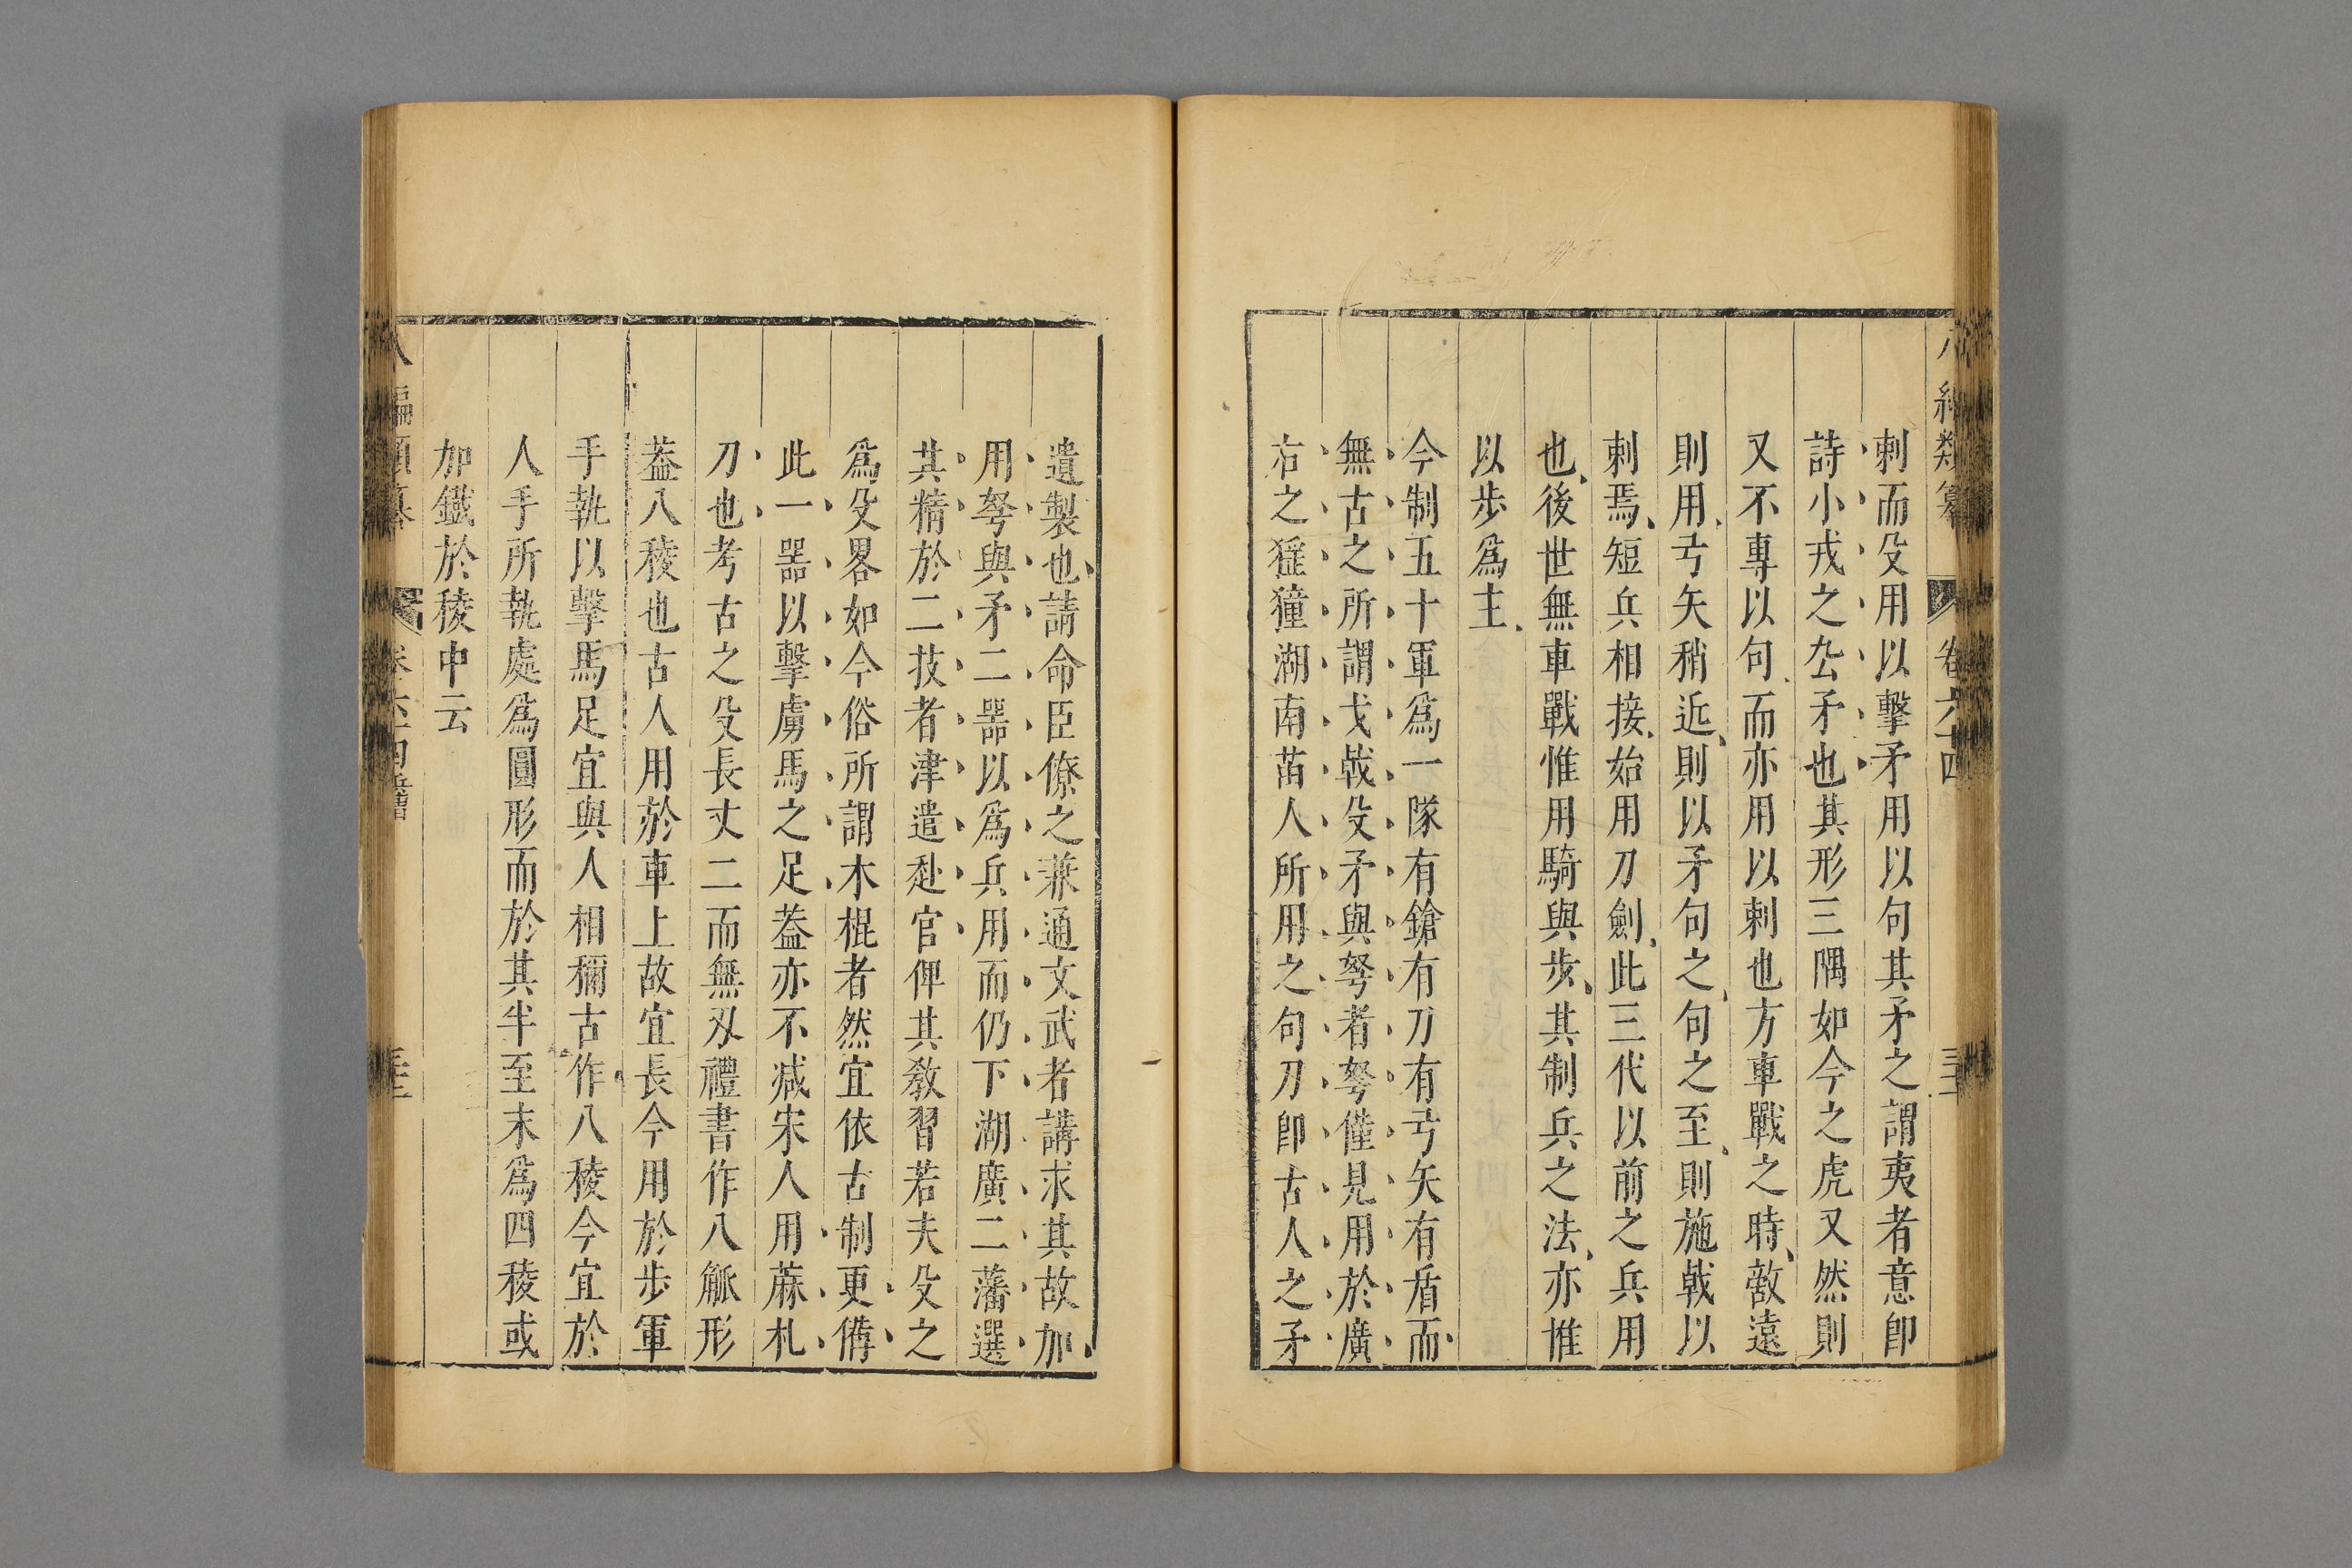 刺而殳用以擊矛用以句其矛之謂夷者意卽
詩小戎之厹矛也其形三隅如今之虎叉然則
又不專以句而亦用以刺也方車戰之時敵遠
則用弓矢稍近則以矛句之句之至則施戟以
刺焉短兵相接始用刀劍此三代以前之兵用
也後世無車戰惟用騎與步其制兵之法亦惟
以步爲主
今制五十軍爲一隊有鎗有刀有弓矢有盾而
無古之所謂戈戟殳矛與弩者弩僅見用於廣
右之猺獞湖南苗人所用之句刀卽古人之矛
遺製也請命臣僚之兼通文武者講求其故加
用弩與矛二器以爲兵用而仍下湖廣二藩選
其精於二技者津遣赴官俾其敎習若夫殳之
爲殳畧如今俗所謂木棍者然宜依古制更備
此一器以擊虜馬之足葢亦不减宋人用蔴札
刀也考古之殳長丈二而無刄禮書作八觚形
葢八稜也古人用於車上故宜長今用於步軍
手執以擊馬足宜與人相稱古作八稜今宜於
人手所執處爲圓形而於其半至末爲四稜或
加鐵於稜中云